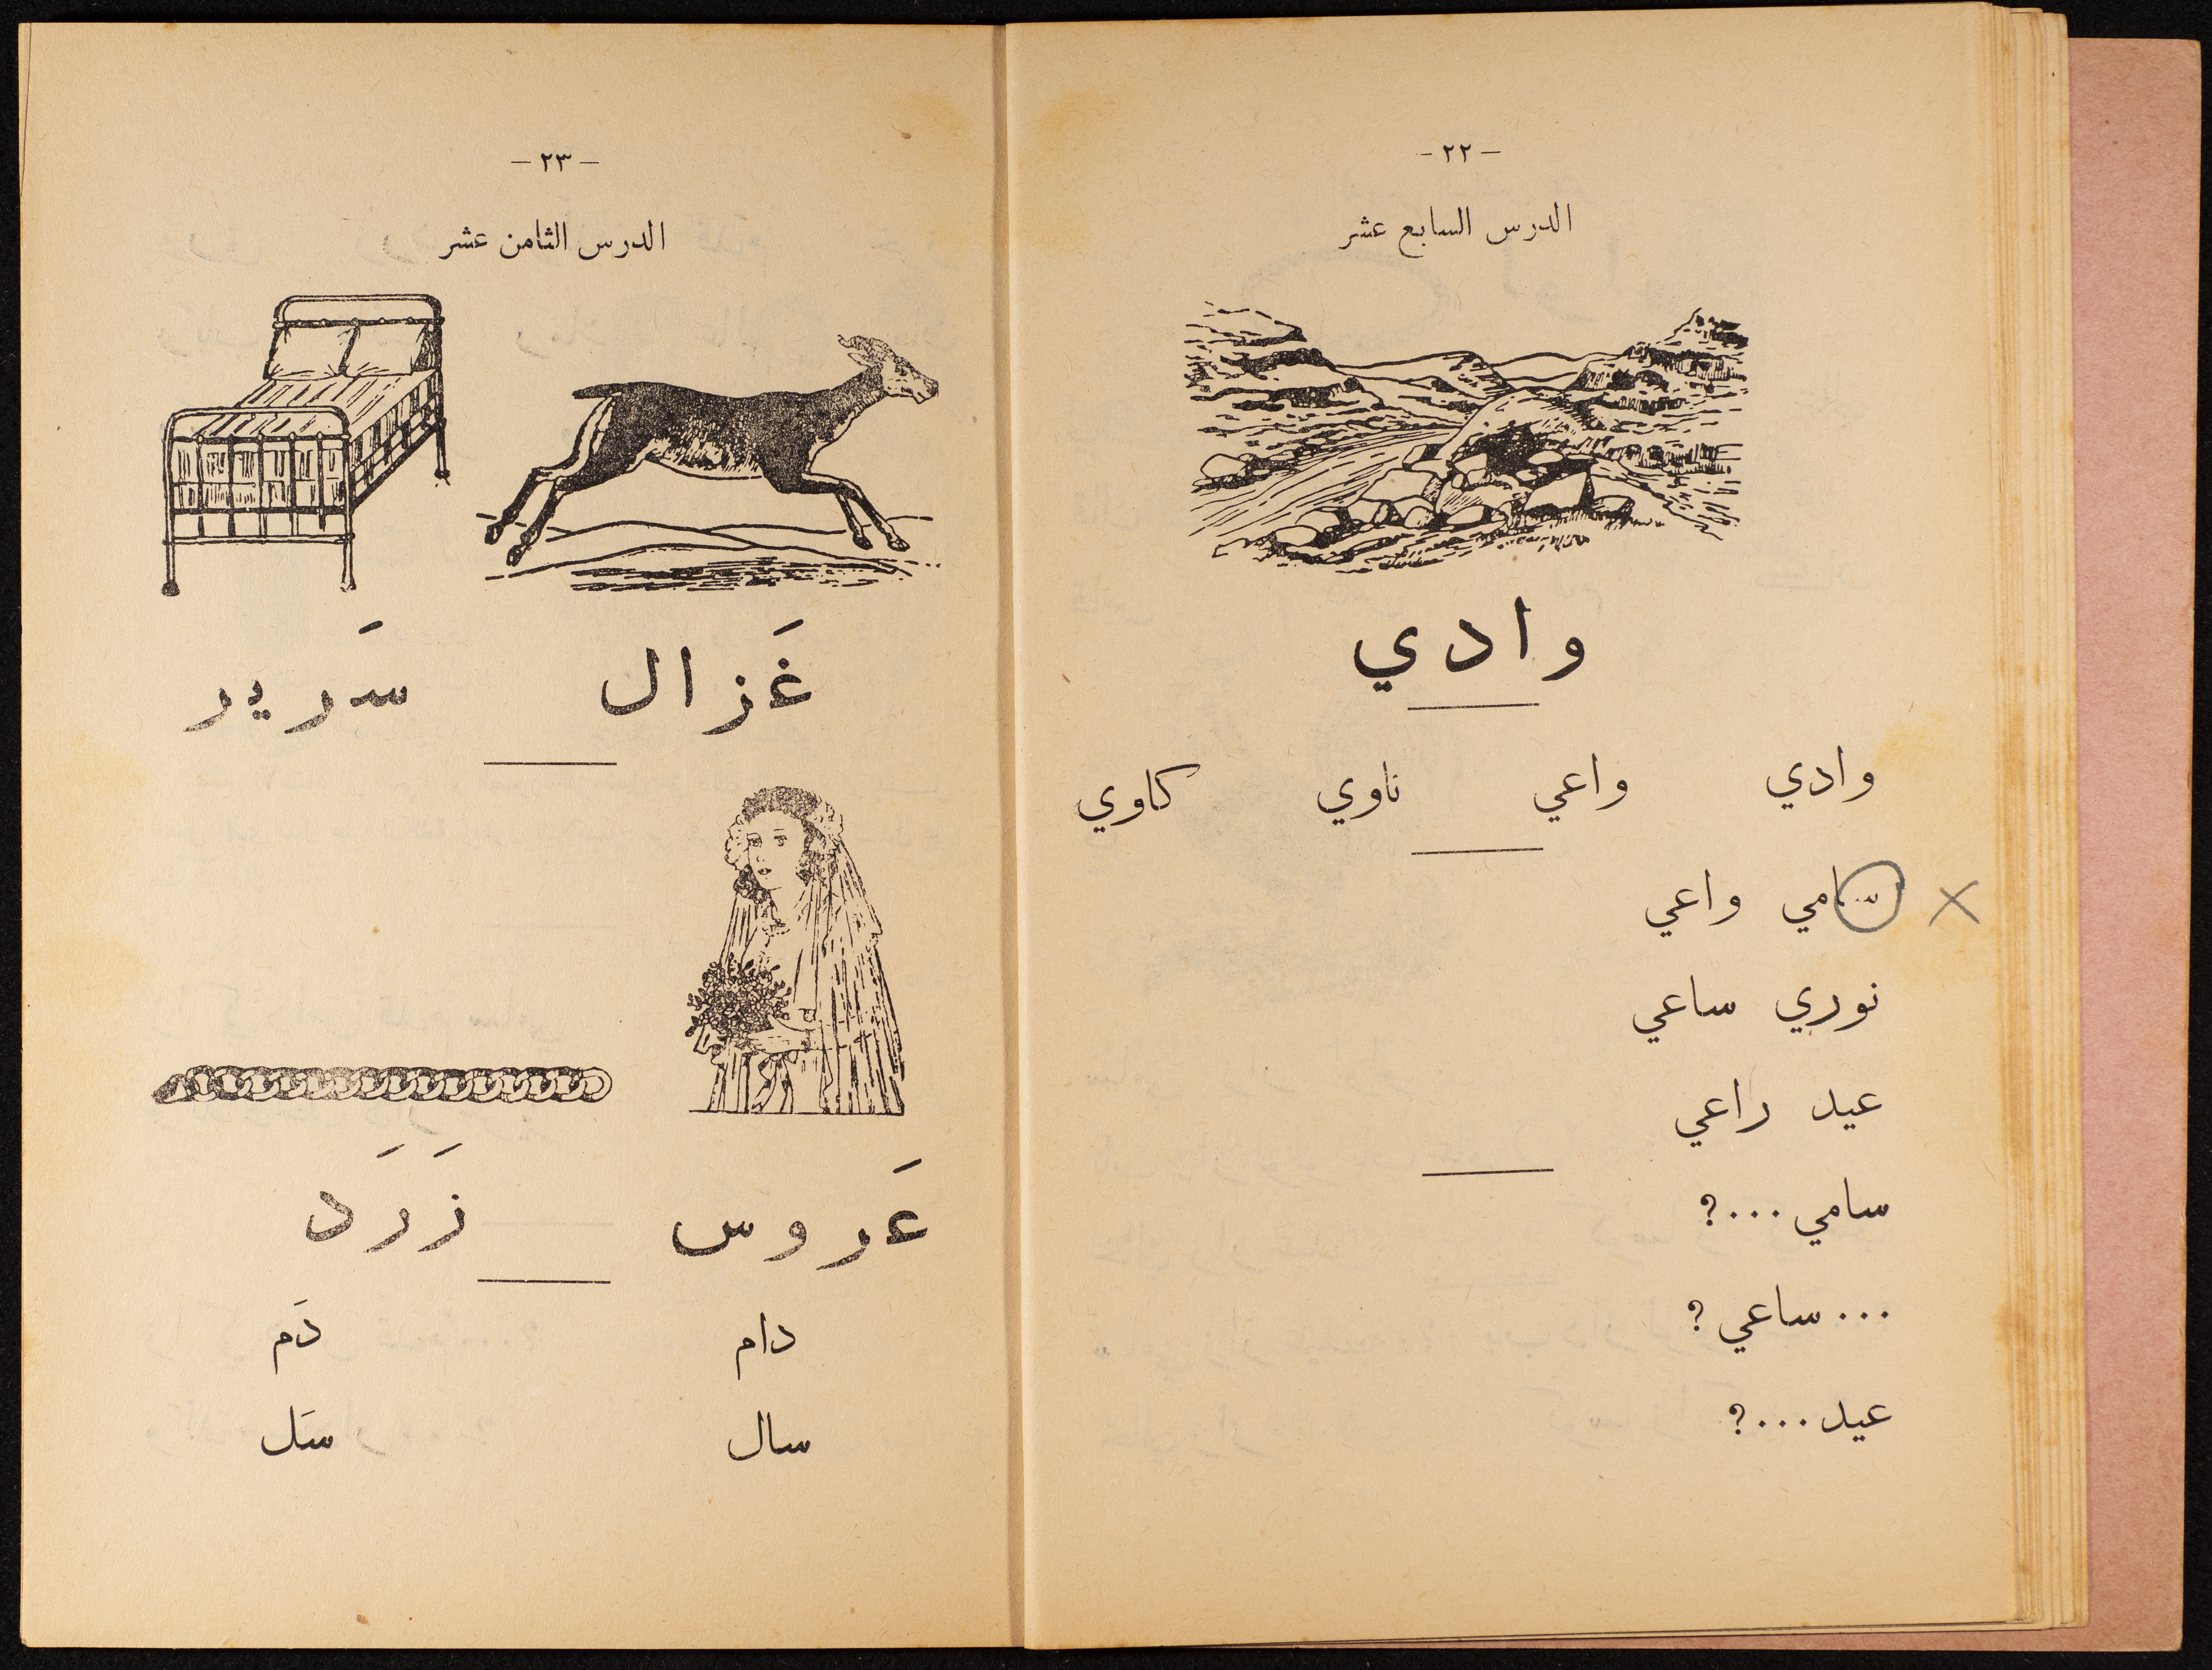 - ٢٢ -
الدرس السابع عشر
وادي
وادي واعي ناوي كاوي
سامي واعي
نوري ساعي
عيد راعي
سامي ...؟
... ساعي ؟
عيد ...؟
- ٢٣ -
الدرس الثامن عشر
غَزال سَرير
عَروس زَرَد
دام دَم
سال سَل